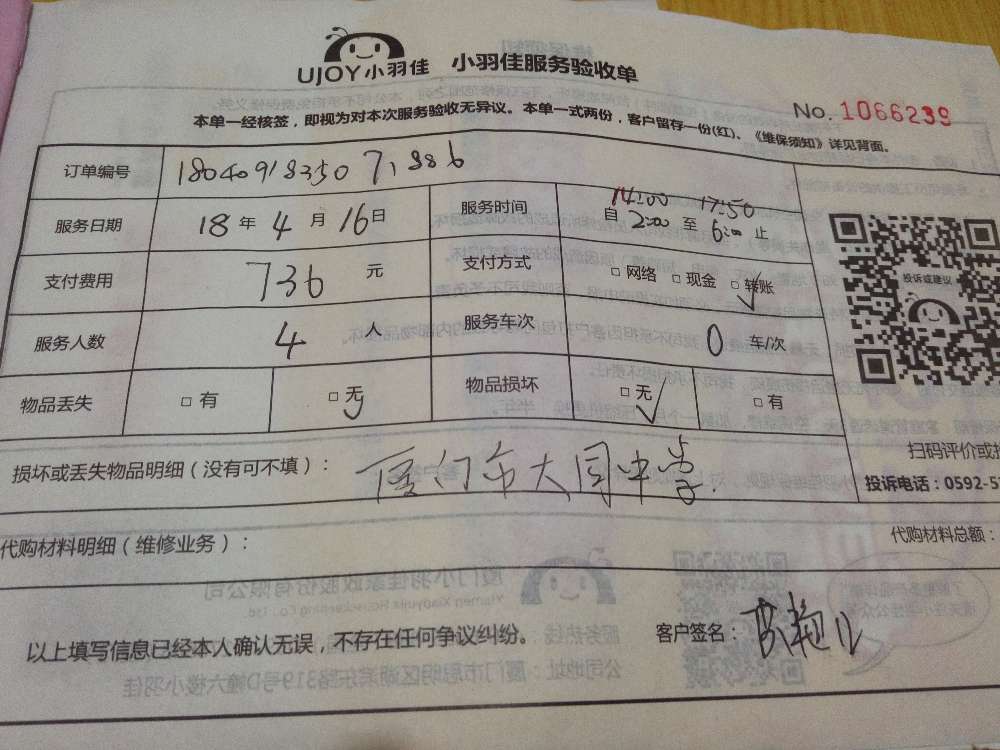 UJOY小羽佳 小羽佳服务验收单
No. 1066239
本单一经核签，即视为对本次服务验收无异议。本单一式两份，客户留存一份(红)、《维保须知》详见背面。
订单编号
服务日期 18 年 4 月 16 日 服务时间 自 14:00 2:00 至 17:50 6:00 止
支付费用 736 元 支付方式 □ 网络 □ 现金 □ 转账
投诉或建议
服务人数 4 人 服务车次 0 车/次
物品丢失 □ 有 □ 无 物品损坏 □ 无 □ 有
扫码评价或
损坏或丢失物品明细（没有可不填）： 厦门市大同中学
投诉电话：0592-5
代购材料明细（维修业务）： 代购材料总额：
以上填写信息已经本人确认无误，不存在任何争议纠纷。 客户签名：